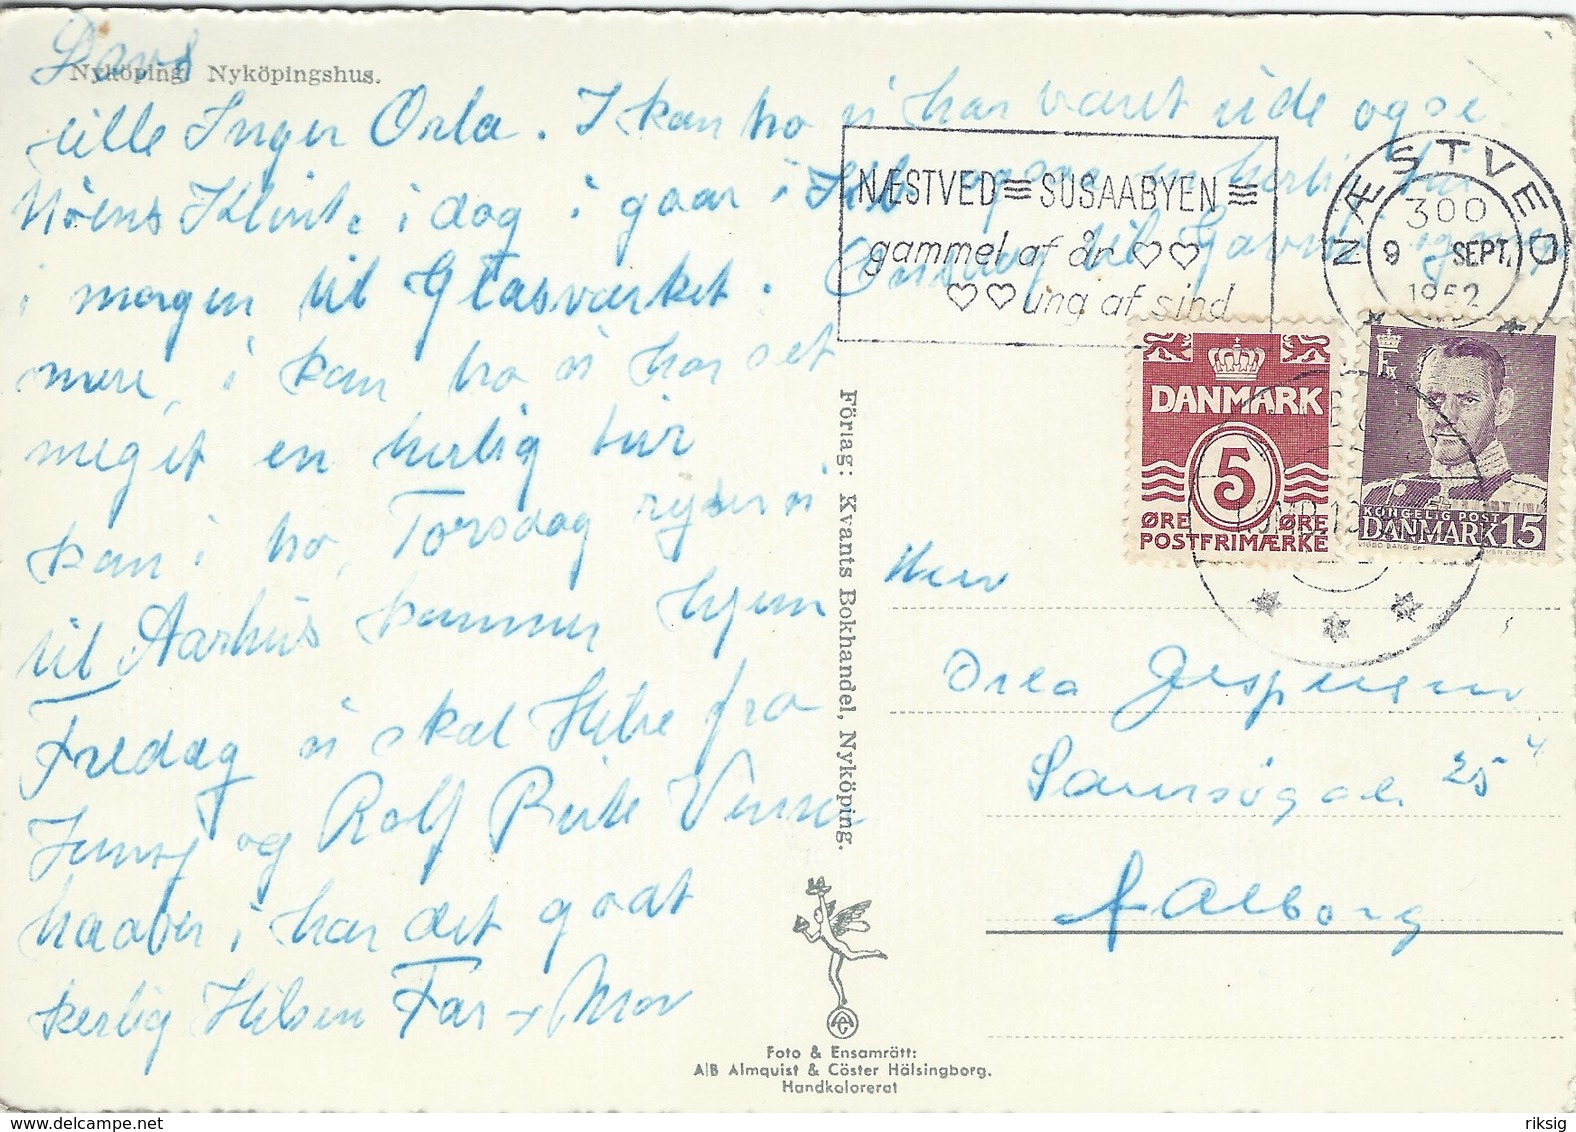 Davs
Nyköping. Nyköpingshus.
lille Inger Orla. I kan tro vi har været ude ogse
Möens Klint i dag i gaar i
i morgen til Glasværket. Onsdag til Gavnø
mere, i kan tro vi har set
meget en herlig tur
kan i tro, Torsdag rejser vi
til Aarhus kommer hjem
Fredag vi skal Hilse fra
Jenny og Rolf Birte Verner
haaber i har det godt
kerlig Hilsen Far + Mor
NÆSTVED SUSAABYEN
gammel af år ♡♡
♡♡ ung af sind
NÆSTVED
300
9 SEPT. 1952
DANMARK
5
ØRE ØRE
POSTFRIMÆRKE
KONGELIG POST
DANMARK 15
Förlag: Kvants Bokhandel, Nyköping.
Herr
Orla Jespersen
Samsøgade 25 4
Aalborg
Foto & Ensamrätt:
A/B Almquist & Cöster Hälsingborg.
Handkolorerat
riksig